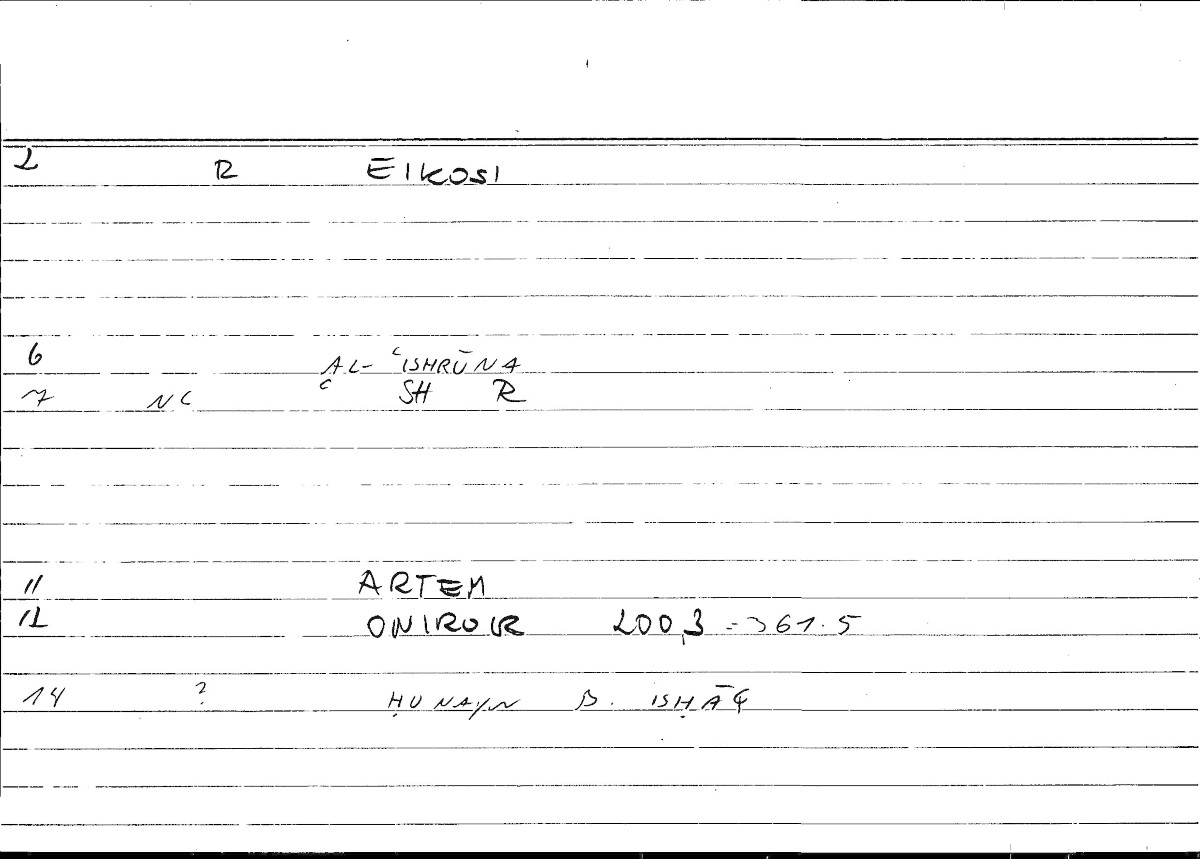 2 R EIKOSI
6 AL- ʿISHRŪNA
7 NC ʿ SH R
11 ARTEM
12 ONIROCR 200,3 = 361.5
14 ? ḤUNAYN B. ISḤĀQ